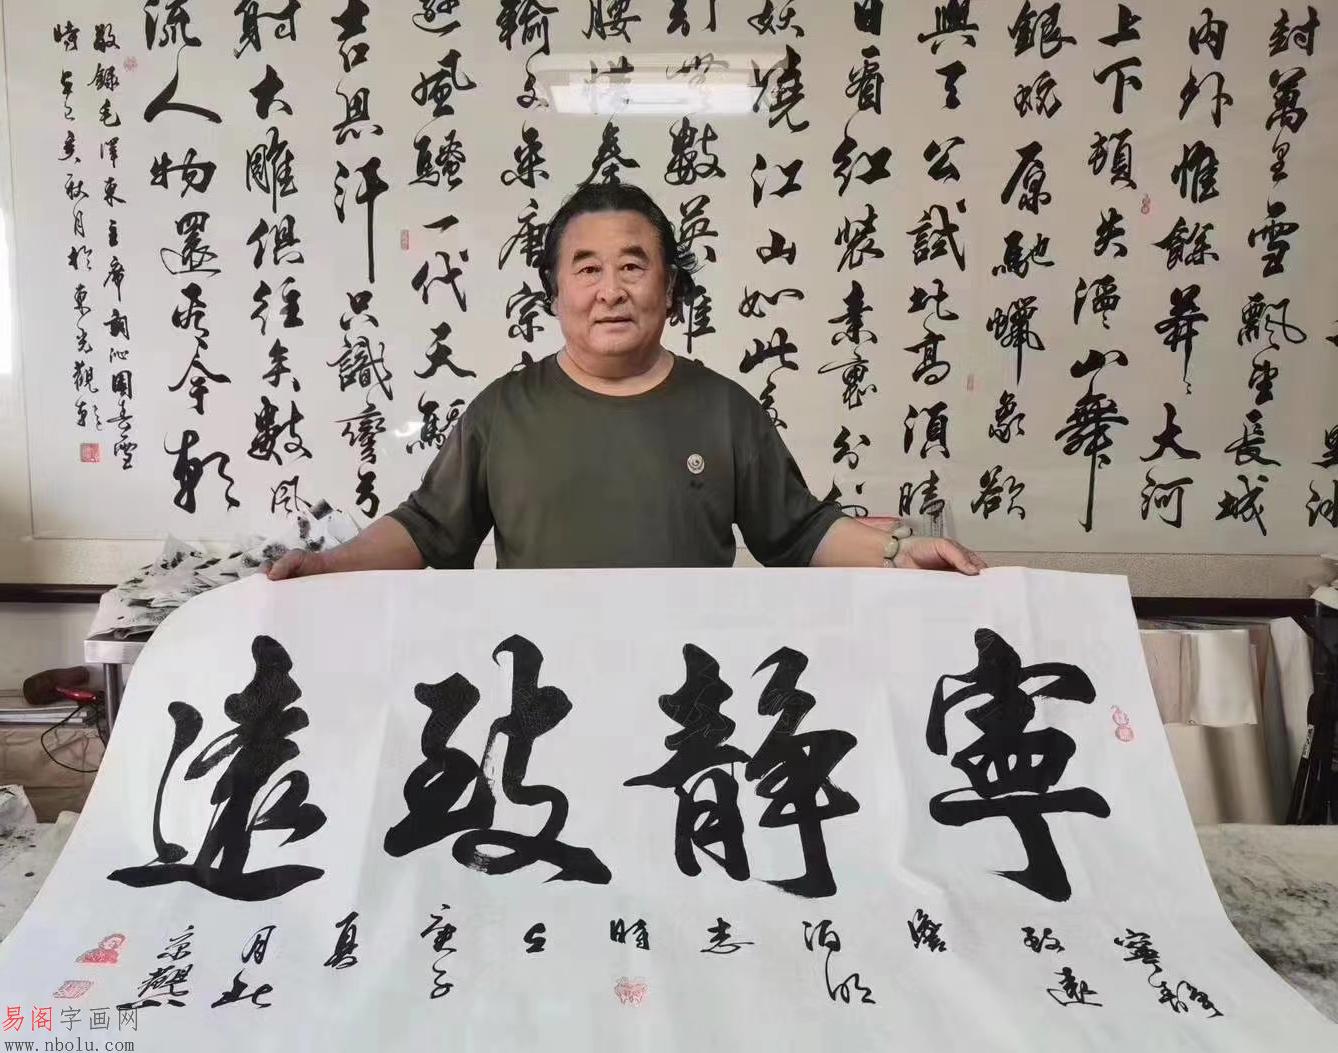 里冰
封萬里雪飄望長城
内外惟餘莽莽大河
上下頓失滔滔山舞
銀蛇原馳蠟象欲
與天公試比高須晴
日看紅裝素裹分外
妖嬈江山如此多
引無數英雄
腰惜秦
輸文采唐宗
遜風騷一代天驕
吉思汗只識彎弓
射大雕俱往矣數風
流人物還看今朝
敬録毛澤東主席詞沁園春雪
時在己亥秋月於東光觀
寧靜致遠
寧静致遠澹泊明志時在庚子夏月北京觀
易阁字画网
www.nbolu.com